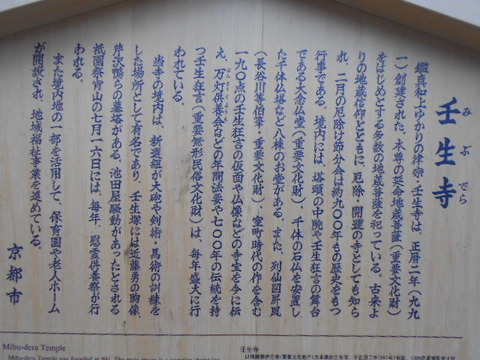 壬生寺
みぶでら
鑑真和上ゆかりの律宗・壬生寺は、正暦二年(九九
一)創建された。本尊の延命地蔵菩薩(重要文化財)
をはじめとする多数の地蔵菩薩を祀っている。古来よ
りの地蔵信仰とともに、厄除・開運の寺としても知ら
れ、二月の厄除け節分会は約九〇〇年もの歴史をもつ
行事である。境内には、塔頭の中院や壬生狂言の舞台
である大念仏堂(重要文化財)、千体の石仏を安置し
た千体仏塔など八棟のお堂がある。また、列仙図屏風
(長谷川等伯筆・重要文化財)、室町時代の作を含む
一九〇点の壬生狂言の仮面や仏像などの寺宝を今に伝
え、万灯供養会などの年間法要や七〇〇年の伝統を持
つ壬生狂言(重要無形民俗文化財)は、毎年盛大に行
われている。
当寺の境内は、新選組が大砲や剣術・馬術の訓練を
した場所として有名であり、壬生塚には近藤勇の胸像、
芹沢鴨らの墓塔がある。池田屋騒動があったとされる
祇園祭宵山の七月一六日には、毎年、慰霊供養祭が行
われる。
また境内地の一部を活用して、保育園や老人ホーム
が開設され、地域福祉事業を進めている。
京都市
Mibu-dera Temple
壬生寺